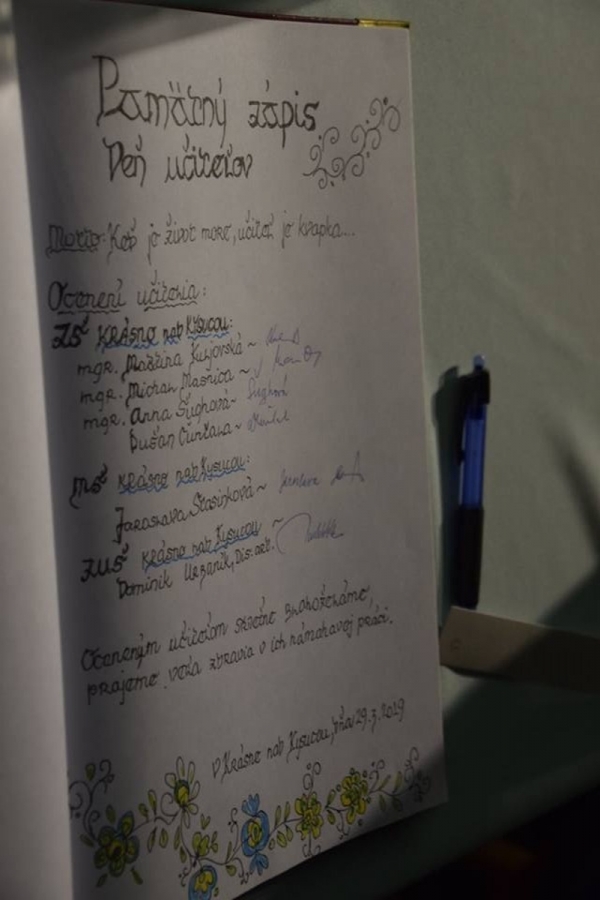 Pamätný zápis
Deň učiteľov
Motto: Keď je život more, učiteľ je kvapka...
Ocenení učitelia:
ZŠ Krásno nad Kysucou:
Mgr. Martina Kuljovská ~
Mgr. Michal Masnica ~
Mgr. Anna Súghová ~ Súghová
Dušan Cuntala ~
MŠ Krásno nad Kysucou:
Jaroslava Stasinková ~
ZUŠ Krásno nad Kysucou ~
Dominik Urbaník, Dis. art.
Oceneným učiteľom srdečne blahoželáme,
prajeme veľa zdravia v ich námahavej práci.
V Krásne nad Kysucou, dňa 29.3.2019